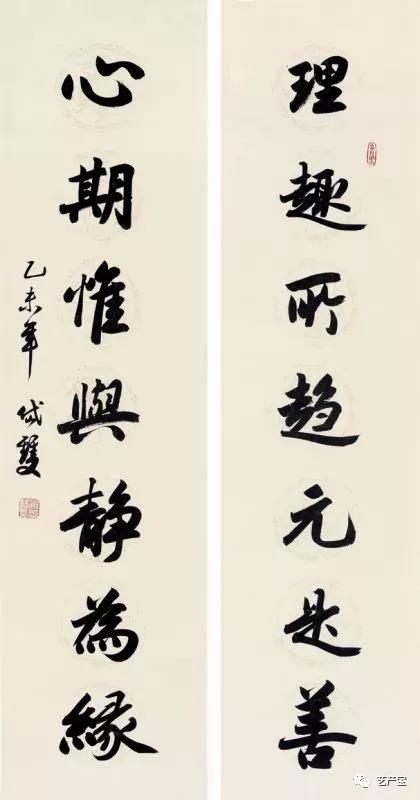 理趣所趋元是善
心期惟與静為緣
乙未年
艺产宝